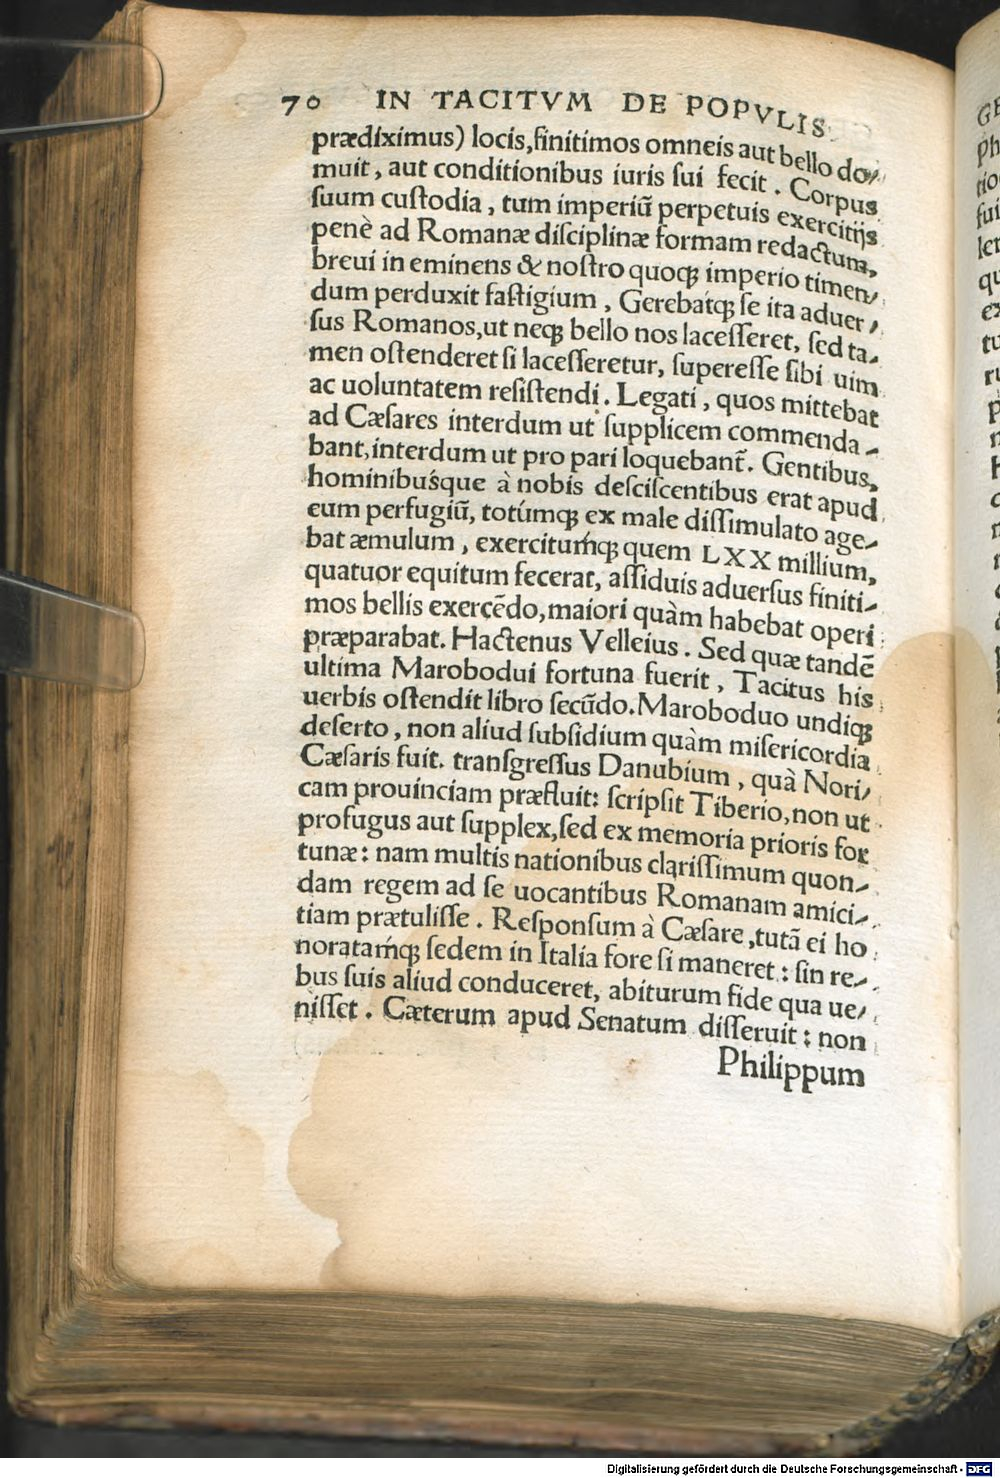 70 IN TACITVM DE POPVLIS
prædiximus) locis, finitimos omneis aut bello do⸗
muit, aut conditionibus iuris sui fecit. Corpus
suum custodia, tum imperiū perpetuis exercitijs
penè ad Romanæ disciplinæ formam redactum,
breui in eminens & nostro quoqꝫ imperio timen⸗
dum perduxit fastigium, Gerebatqꝫ se ita aduer⸗
sus Romanos, ut neqꝫ bello nos lacesseret, sed ta⸗
men ostenderet si lacesseretur, superesse sibi uim
ac uoluntatem resistendi. Legati, quos mittebat
ad Cæsares interdum ut supplicem commenda⸗
bant, interdum ut pro pari loquebant̃. Gentibus,
hominibusq́ue à nobis desciscentibus erat apud
eum perfugiū, totúmqꝫ ex male dissimulato age⸗
bat æmulum, exercitumq́ꝫ quem LXX millium,
quatuor equitum fecerat, assiduis aduersus finiti⸗
mos bellis exercēdo, maiori quàm habebat operi
præparabat. Hactenus Velleius. Sed quæ tandē
ultima Marobodui fortuna fuerit, Tacitus his
uerbis ostendit libro secūdo. Maroboduo undiqꝫ
deserto, non aliud subsidium quàm misericordia
Cæsaris fuit. transgressus Danubium, quà Nori⸗
cam prouinciam præfluit: scripsit Tiberio, non ut
profugus aut supplex, sed ex memoria prioris for
tunæ: nam multis nationibus clarissimum quon⸗
dam regem ad se uocantibus Romanam amici⸗
tiam prætulisse. Responsum à Cæsare, tutā ei ho
norataḿqꝫ sedem in Italia fore si maneret: sin re⸗
bus suis aliud conduceret, abiturum fide qua ue⸗
nisset. Cæterum apud Senatum disseruit: non
Philippum
Digitalisierung gefördert durch die Deutsche Forschungsgemeinschaft - DFG